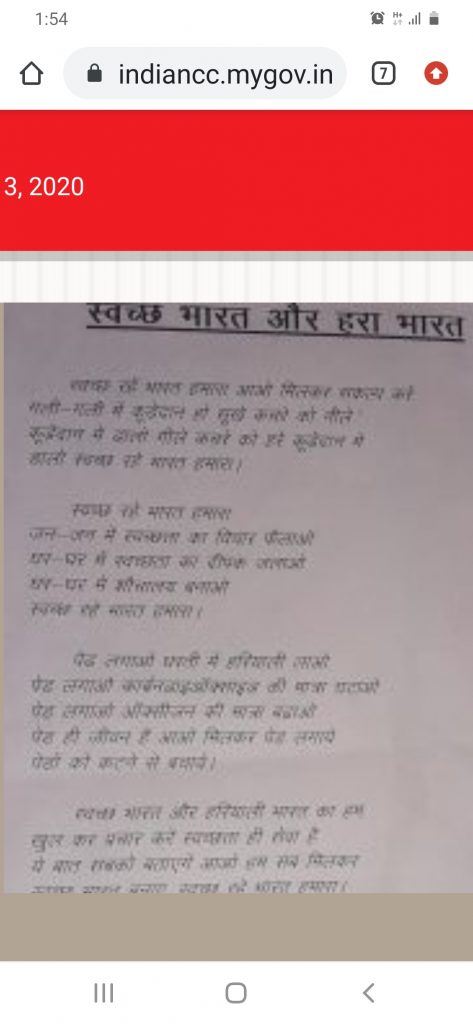 1:54
H+
indiancc.mygov.in
7
3, 2020
स्वच्छ भारत और हरा भारत
स्वच्छ रहे भारत हमारा आओ मिलकर संकल्प करें
गली-गली में कूडेदान हो सूखे कचरे को नीले
कूडेदान में डालो गीले कचरे को हरे कूडेदान में
डालो स्वच्छ रहे भारत हमारा।
स्वच्छ रहे भारत हमारा
जन-जन में स्वच्छता का विचार फैलाओ
घर-घर में स्वच्छता का दीपक जलाओ
घर-घर में शौचालय बनाओ
स्वच्छ रहे भारत हमारा।
पेड लगाओ धरती में हरियाली लाओ
पेड लगाओ कार्बनडाइऑक्साइड की मात्रा घटाओ
पेड लगाओ ऑक्सीजन की मात्रा बढाओ
पेड ही जीवन है आओ मिलकर पेड लगाये
पेडों को कटने से बचाये।
स्वच्छ भारत और हरियाली भारत का हम
खुल कर प्रचार करें स्वच्छता ही सेवा है
ये बात सबको बताएगे आओ हम सब मिलकर
स्वच्छ भारत बनाए स्वच्छ रहे भारत हमारा।